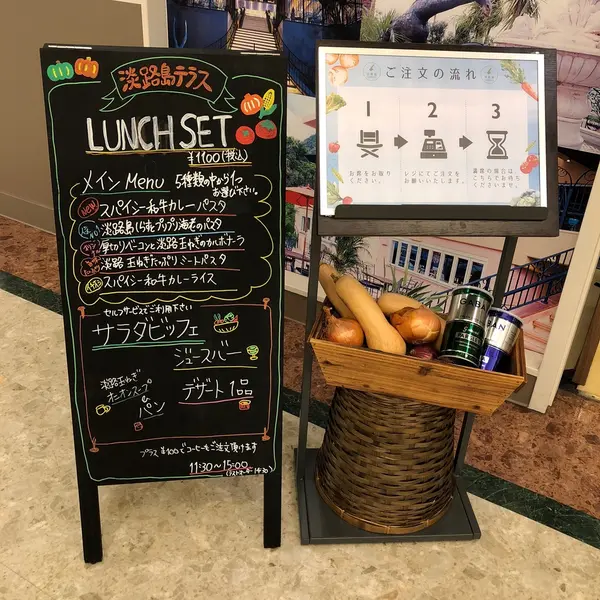 淡路島テラス
LUNCH SET
¥1100(税込)
メイン Menu 5種類の中から1つ
お選び下さい。
NEW スパイシー和牛カレーパスタ
淡路島しらすとプリプリ海老のパスタ
厚切りベーコンと淡路玉ねぎのカルボナーラ
淡路玉ねぎたっぷりミートパスタ
スパイシー和牛カレーライス
セルフサービスでご利用下さい
サラダビッフェ
ジュースバー
淡路玉ねぎ
オニオンスープ
&
パン
デザート1品
プラス¥100でコーヒーをご注文頂けます
11:30~15:00
(ラストオーダー14:30)
ご注文の流れ
1
2
3
お席をお取り
ください。
レジにてご注文を
お願いいたします。
こちらでお待ち
くださいませ。